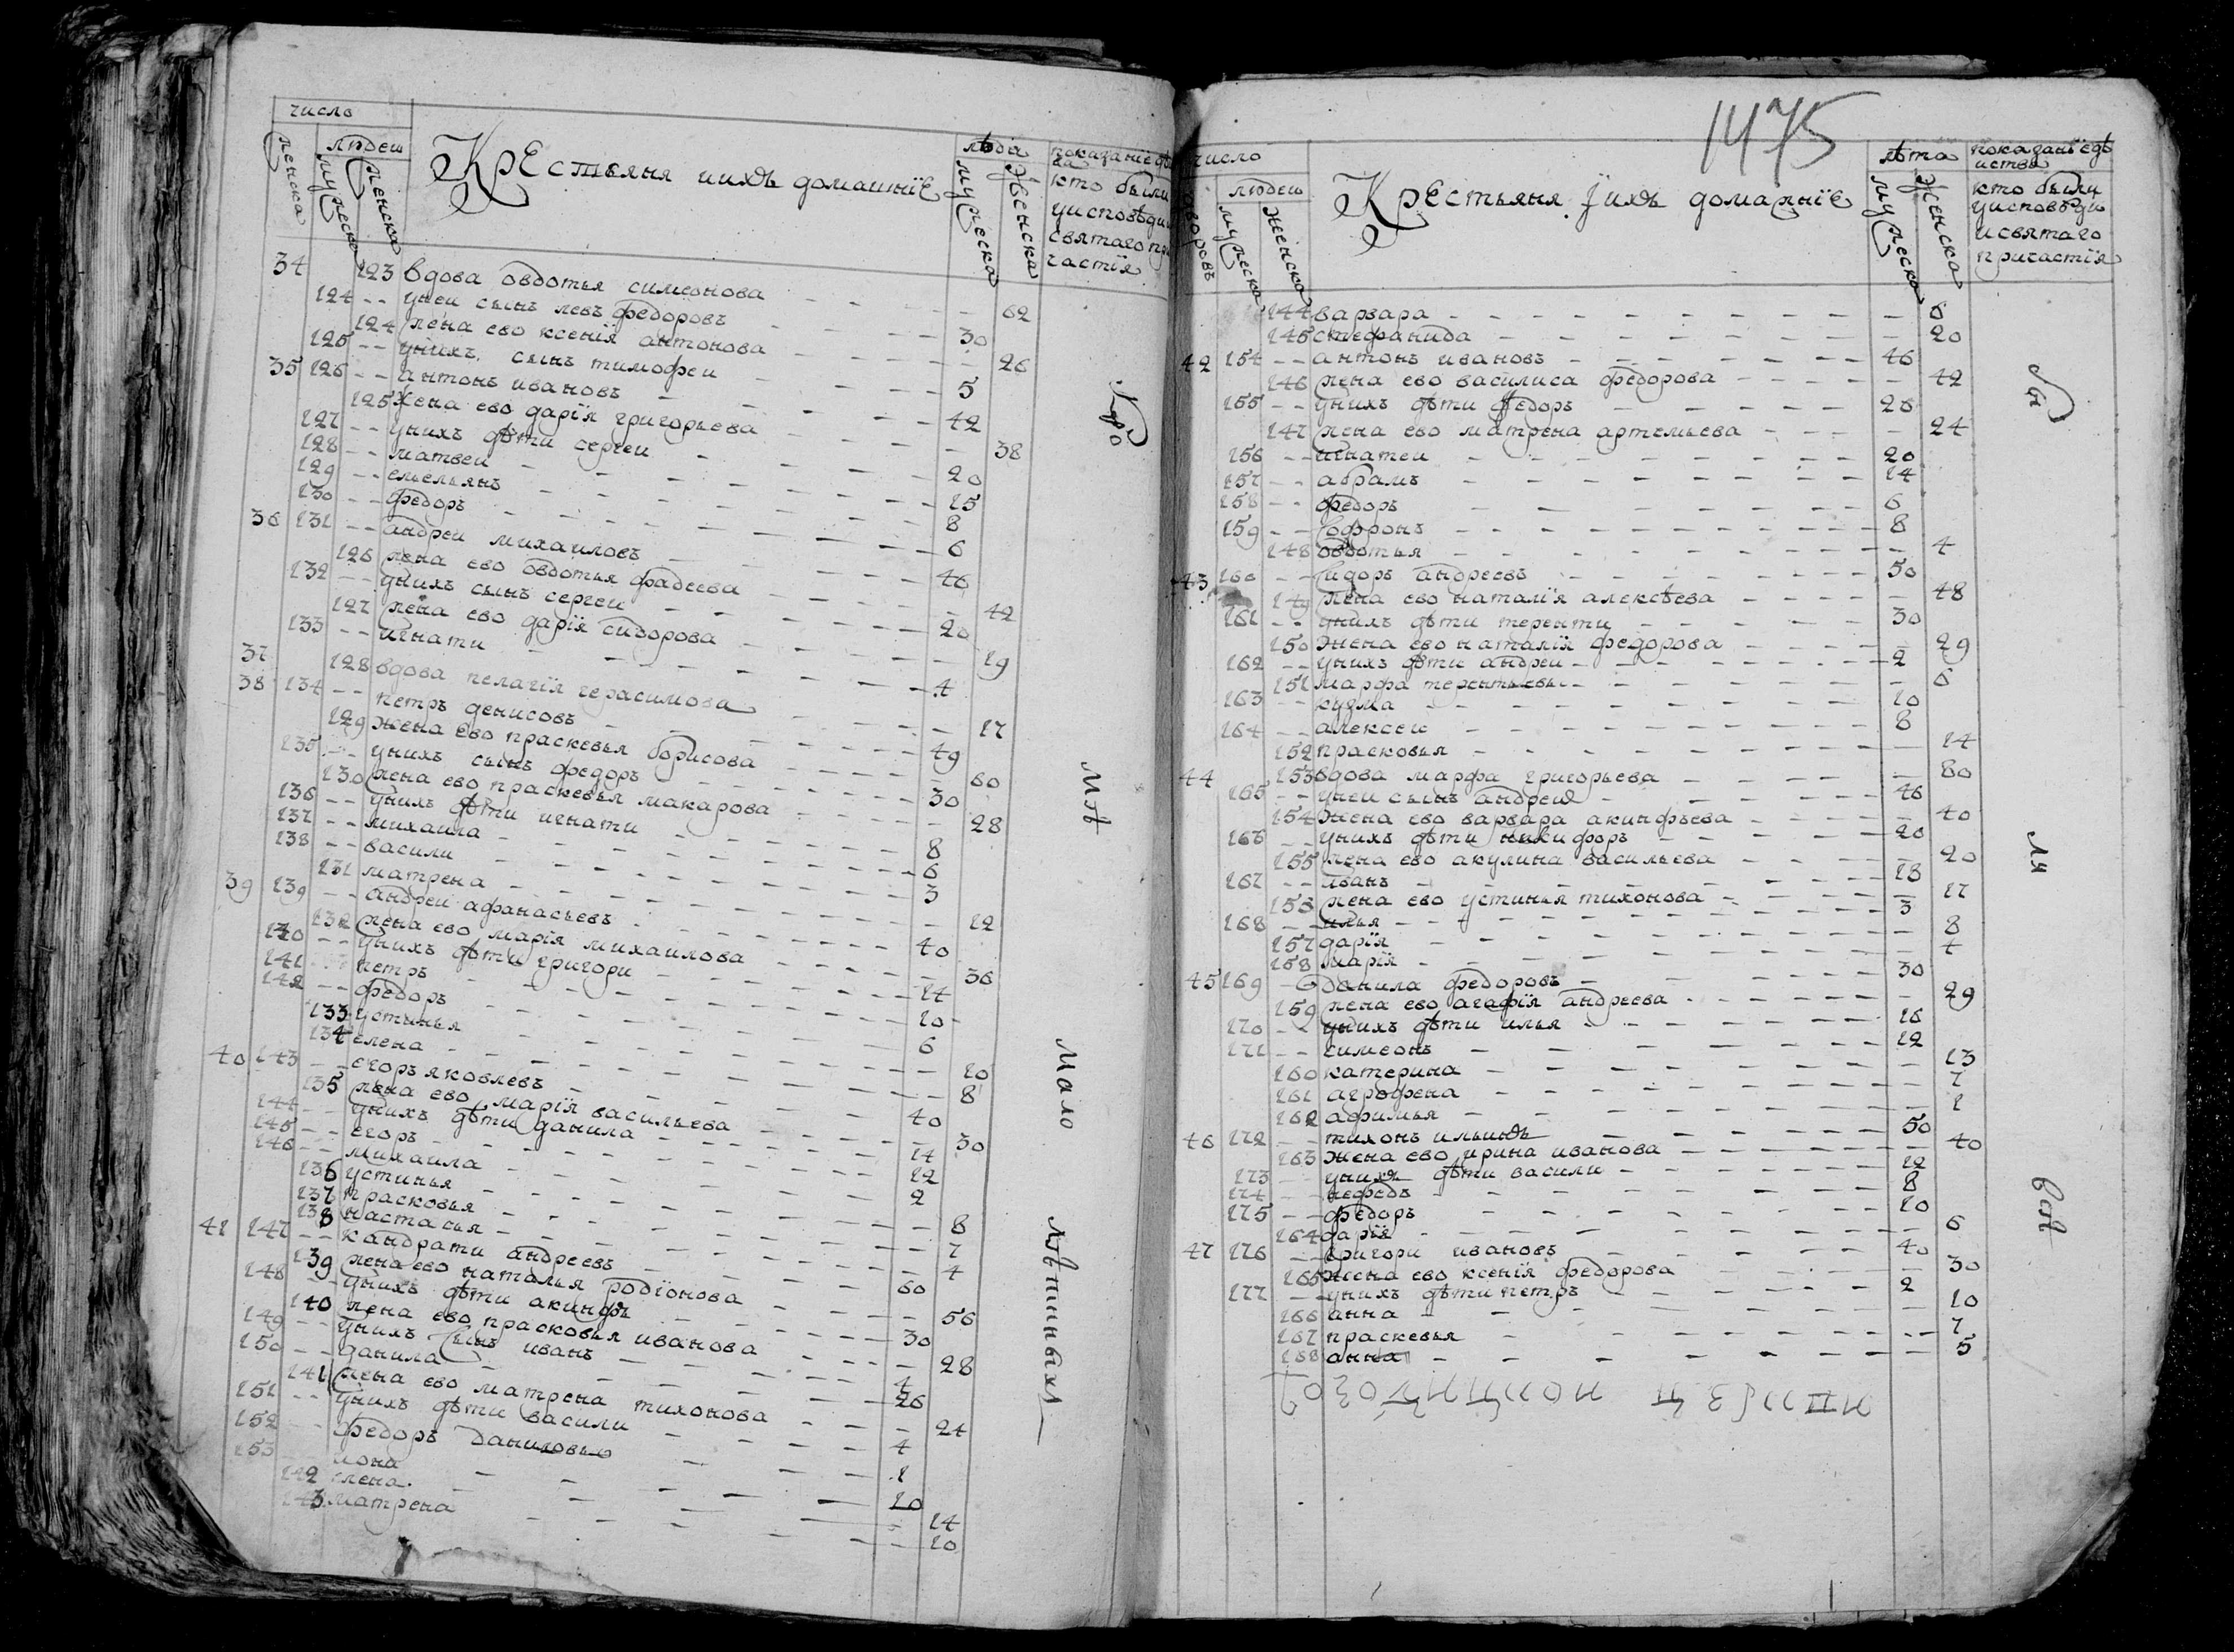 число
людеи
женска
мужеска
женска
Крестьяня иихъ домашнїе
лѣта
мужеска
женска
кто были
уисповѣди
святаго при
частїя
34 123 вдова овдотья симеонова - - - 62
124 - - унеи сынъ левъ федоровъ - - - 30
124 жена ево ксенїя антонова - - - 26
125 - - унихъ сынъ тимофеи - - - 5
35 126 - - антонъ ивановъ - - - 42
125 жена ево дарїя григорьева - - - 38
127 - - унихъ дѣти сергеи - - - 20
128 - - матвеи - - - 15
129 - - емельянъ - - - 8
130 - - федоръ - - - 6
36 131 - - андреи михаиловъ - - - 46
126 жена ево овдотья фадеева - - - 42
132 - - унихъ сынъ сергеи - - - 20
127 жена ево дарїя сидорова - - - 19
133 - - игнати - - - 4
37 128 вдова пелагїя герасимова - - - 17
38 134 - - петръ денисовъ - - - 49
129 жена ево праскевья борисова - - - 60
135 - - унихъ сынъ федоръ - - - 30
130 жена ево праскевья макарова - - - 28
136 - - унихъ дѣти игнати - - - 8
137 - - михаила - - - 6
138 - - васили - - - 3
131 матрена - - - 12
39 139 - - андреи афанасьевъ - - - 40
132 жена ево марїя михаилова - - - 36
140 - - унихъ дѣти григори - - - 14
141 - - петръ - - - 10
142 - - федоръ - - - 6
133 устинья - - - 10
134 елена - - - 8
40 143 - - егоръ яковлевъ - - - 40
135 жена ево марїя васильева - - - 30
144 - - унихъ дѣти данила - - - 14
145 - - егоръ - - - 12
146 - - михаила - - - 2
136 устинья - - - 8
137 прасковья - - - 7
138 настасья - - - 4
41 147 - - кандрати андреевъ - - - 60
139 жена ево наталья родїонова - - - 56
148 - - унихъ дѣти акинфъ - - - 30
140 жена ево прасковья иванова - - - 28
149 - - унихъ сынъ иванъ - - - 4
150 - - данила - - - 26
141 жена ево матрена тихонова - - - 24
151 - - унихъ дѣти васили - - - 4
152 - - федоръ даниловъ - - - 1
153 иона - - - 10
142 елена - - - 14
143 матрена - - - 10
мѣ
мало
лѣтныхъ
1475
число
людеи
дворовъ
мужеска
женска
Крестьяня Їихъ домашнїе
лѣта
мужеска
женска
кто были
уисповѣди
исвятаго
причастїя
144 варвара - - - 6
145 стефанида - - - 20
42 154 - - антонъ ивановъ - - - 46
146 жена ево василиса федорова - - - 42
155 - - унихъ дѣти федоръ - - - 26
147 жена ево матрена артемьева - - - 24
156 - - игнатеи - - - 20
157 - - абрамъ - - - 14
158 - - федоръ - - - 6
159 - - софронъ - - - 8
148 овдотья - - - 4
43 160 - - сидоръ андреевъ - - - 50
149 жена ево наталїя алексѣева - - - 48
161 - - унихъ дѣти теренти - - - 30
150 жена ево наталїя федорова - - - 29
162 - - унихъ дѣти андреи - - - 2
151 марфа терентьева - - - 6
163 - - кузма - - - 10
164 - - алексеи - - - 8
152 прасковья - - - 14
44 153 вдова марфа григорьева - - - 80
165 - - унеи сынъ андреи - - - 46
154 жена ево варвара акинфьева - - - 40
166 - - унихъ дѣти никифоръ - - - 20
155 жена ево акулина васильева - - - 20
167 - - иванъ - - - 18
156 жена ево устинья тихонова - - - 17
168 - - илья - - - 3
157 дарїя - - - 8
158 марїя - - - 4
45 169 - данила федоровъ - - - 30
159 жена ево агафїя андреева - - - 29
170 - - унихъ дѣти илья - - - 16
171 - - симеонъ - - - 12
160 катерина - - - 13
161 агрофена - - - 7
162 афимья - - - 1
46 172 - - тихонъ ильинъ - - - 50
163 жена ево ирина иванова - - - 40
173 - - унихъ дѣти васили - - - 12
174 - - нефедъ - - - 8
175 - - федоръ - - - 10
164 дарїя - - - 6
47 176 - - григори ивановъ - - - 40
165 жена ево ксенїя федорова - - - 30
177 - - унихъ дѣти петръ - - - 2
166 анна - - - 10
167 праскевья - - - 7
168 анна - - - 5